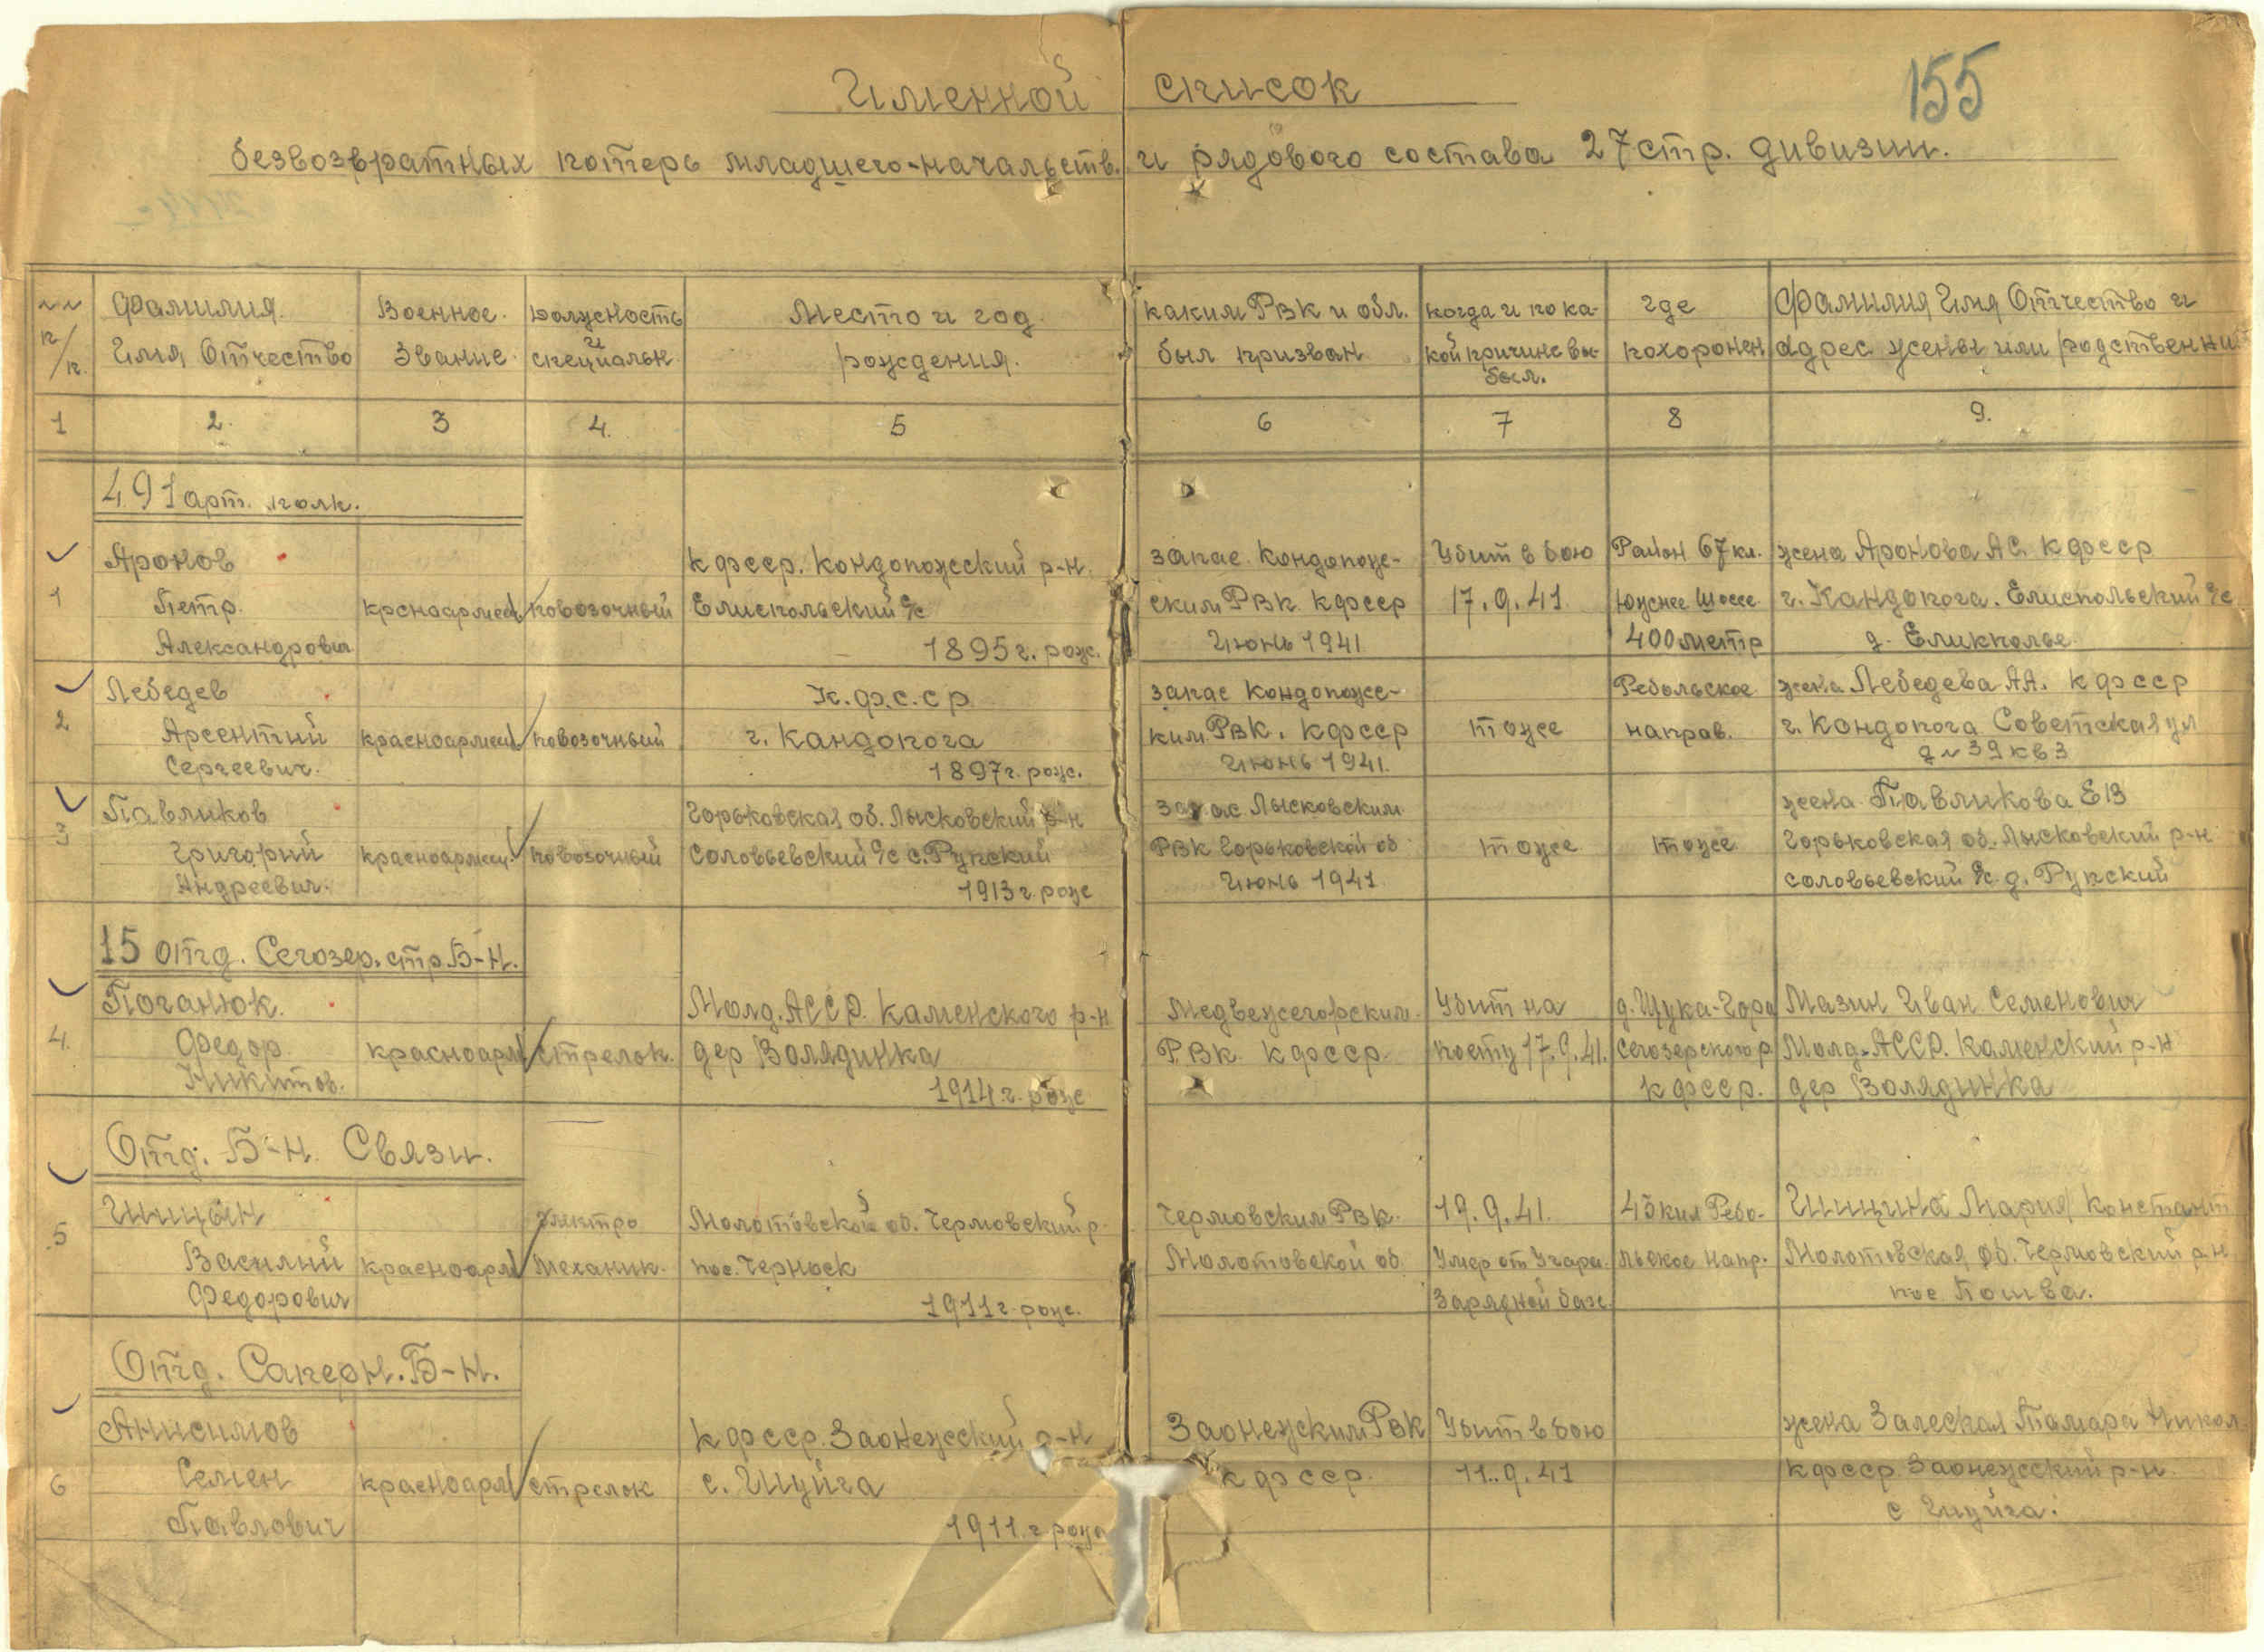 155
Именной список
безвозвратных потерь младшего-начальств. и рядового состава 27 стр. дивизии.
№№ п/п.
Фамилия Имя Отчество
Военное Звание
Должность и специальн
Место и год рождения.
каким РВК и обл. был призван
когда и по ка-
кой причине вы-
был.
где похоронен
Фамилия Имя Отчество и
адрес жены или родственни
1 2. 3 4. 5 6 7 8 9.
491 арт. полк.
Аронов К фсср. Кондопожский р-н. запас Кондопож- Убит в бою Район 67 кл. жена Аронова АС. К фсср
1 Петр. крсноармеец повозочный Елиспольский с/с ским РВК К фсср 17.9.41. Южнее Шоссе г. Кандопога. Елиспольский с/с
Александрович 1895 г. рож. Июнь 1941 400 метр д. Еликполье.
Лебедев К.ф.с.с р запас Кондопоже- Ребольское жена Лебедева А.А. К фсср
2 Арсентий красноармеец повозочный г. Кандопога ким РВК. К фсср тоже направ. г. Кондопога Советская ул
Сергеевич. 1897 г. рож. Июнь 1941. д № 39 кв 3
Павликов Горьковская об. Лысковский р-н запас Лысковским жена Павликова Е В
3 Григорий красноармеец повозочный Соловьевский с/с с. Рупский РВК Горьковской об тоже тоже Горьковская об. Лысковский р-н
Андреевич. 1913 г. рож Июнь 1941 соловьевский с/с д. Рупский
15 отд. Сегозер. стр. Б-н.
Поганюк. Молд. АССР. Каменского р-н Медвежегорским Убит на д. Щука-Гора Мазин Иван Семенович
4. Федор красноарм стрелок. дер Волядинка РВК К фсср посту 17.9.41. Сегозерского р Молд. АССР. Каменский р-н
Никитов. 1914 г. рож К фсср. дер Волядинка
Отд. Б-н. Связи.
Шицын электро Молотовской об. Чермовский р. Чермовским РВК. 19.9.41. 45 кил Ребо- Шицина Мария Констант
5 Василий красноарм механик. пос. Чермоск Молотовской об. Умер от Угара льское напр. Молотовская об. Чермовский р-н
Федорович 1911 г. рож. Зарядной базе. пос. Пошва.
Отд. Саперн. Б-н.
Анисимов К фсср. Заонежский р-н Заонежским РВК Убит в бою жена Залеская Тамара Никол
6 Семен красноарм стрелок с. Шуйга К фсср. 11.9.41 К фсср Заонежский р-н
Павлович 1911. г рожд с Шуйга.